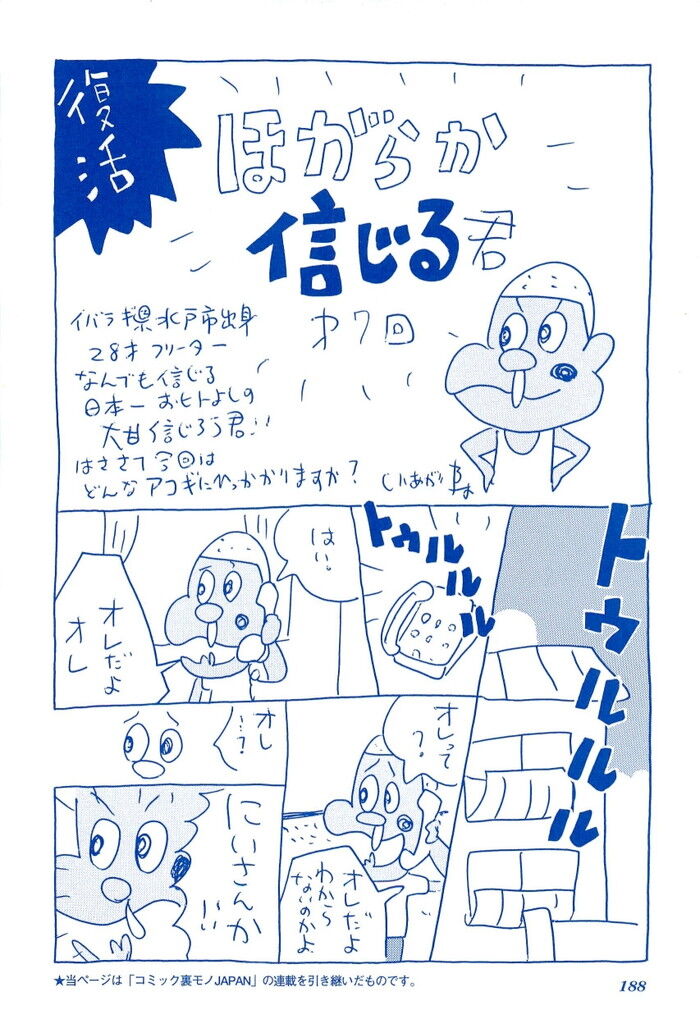 復活
ほがらか
信じる君
オ7回
イバラギ県水戸市出身
28才フリーター
なんでも信じる
日本一おヒトよしの
大甘信じろう君!!
はささて今回は
どんなアコギにひっかかりますか?
しりあがり寿
トゥルルルル
トゥルルル
はい。
オレだよ
オレ
オレって
?
オレだよ
わから
ないのかよ
オレ
…?
にいさんか
!!
★当ページは「コミック裏モノJAPAN」の連載を引き継いだものです。
188